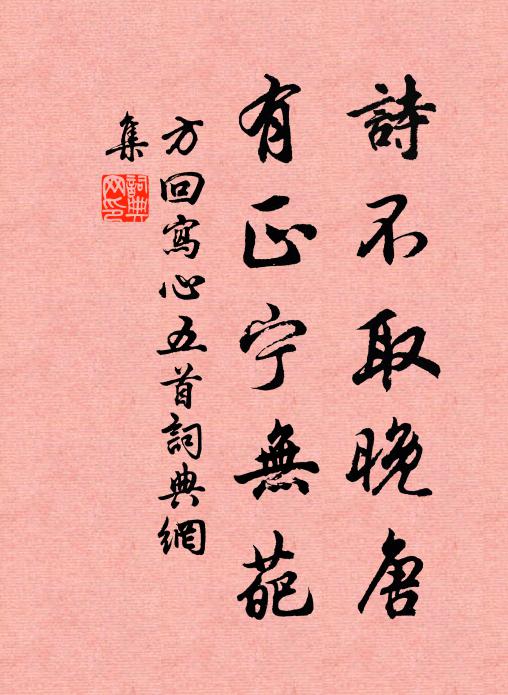 詩不取晚唐
有正宁無葩
方回寫心五首詞典網
集
詞典
网印